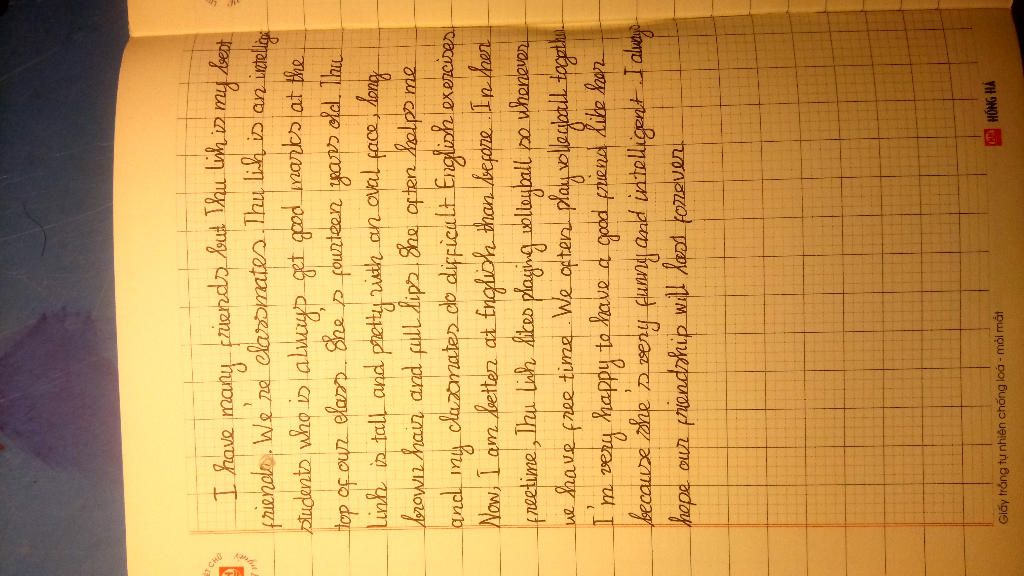 I have many friends but Thu Linh is my best
friends. We're classmates. Thu Linh is an intellige
students who is always get good marks at the
top of our class. She's fourteen years old. Thu
Linh is tall and pretty with an oval face, long
brown hair and full lips. She often helps me
and my classmates do difficult English exercises
Now, I am better at English than before. In her
freetime, Thu Linh likes playing volleyball so whenever
we have free time. We often play volleyball together
I'm very happy to have a good friend like her
because she's very funny and intelligent. I always
hope our friendship will last forever
HỒNG HÀ
Giấy trắng tự nhiên chống loá - mỏi mắt